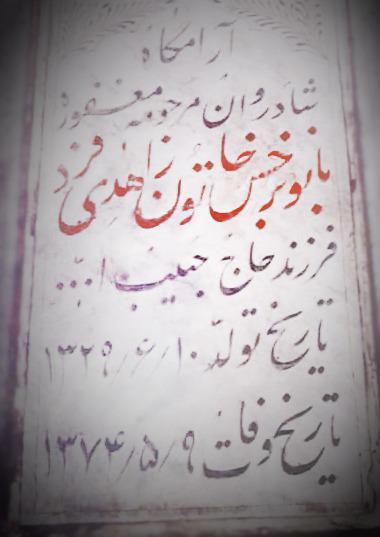 آرامگاه
شادروان مرحومه مغفوره
بانو نرخس خاتون زاهدی فرد
فرزند حاج حبیب ا...
تاریخ تولد ۱۳۲۹/۶/۱۰
تاریخ وفات ۱۳۷۴/۵/۹